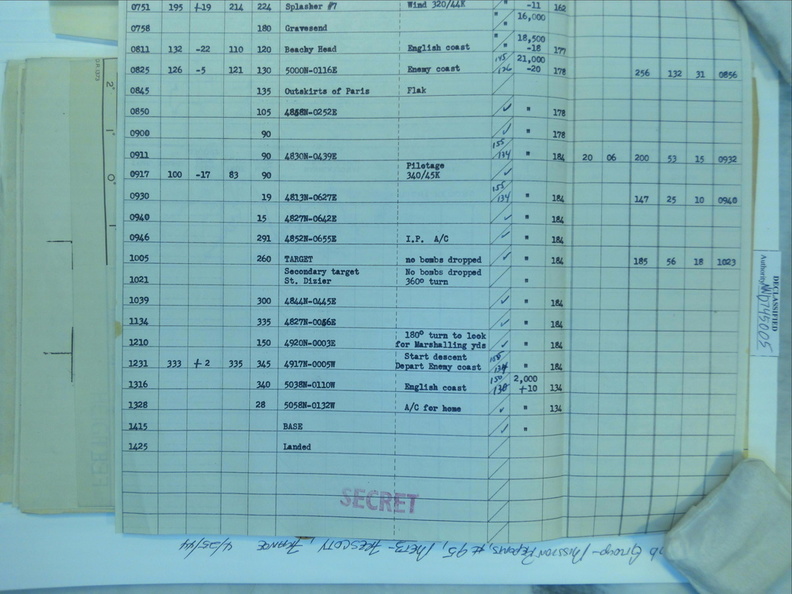 0751 195 +19 214 224 Splasher #7 Wind 320/44K " -11 162
" 16,000
0758 180 Gravesend
18,500
0811 132 -22 110 120 Beachy Head English coast " -18 177
21,000
0825 126 -5 121 130 5000N-0116E Enemy coast 155/136 -20 178 256 132 31 0856
0845 135 Outskirts of Paris Flak
0850 105 4858N-0252E ✓ " 178
0900 90 ✓ " 178
0911 90 4830N-0439E 155/134 " 184 20 06 200 53 15 0932
Pilotage
0917 100 -17 83 90 340/45K ✓
0930 19 4813N-0627E 155/134 " 184 147 25 10 0940
0940 15 4827N-0642E ✓ " 184
0946 291 4852N-0655E I.P. A/C ✓ " 184
1005 260 TARGET no bombs dropped ✓ " 184 185 56 18 1023
Secondary target No bombs dropped
1021 St. Dizier 360° turn "
1039 300 4844N-0445E ✓ " 184
1134 335 4827N-0056E ✓ " 184
180° turn to look
1210 150 4920N-0003E for Marshalling yds ✓ " 184
Start descent
1231 333 +2 335 345 4917N-0005W Depart Enemy coast 155/134 " 184
2,000
1316 340 5038N-0110W English coast 150/130 +10 134
1328 28 5058N-0132W A/C for home ✓ " 134
1415 BASE ✓ "
1425 Landed
SECRET
Group-Mission Reports, #95, Metz-Frescoty, France 4/25/44
DECLASSIFIED
Authority NND745005
2"
1"
0"